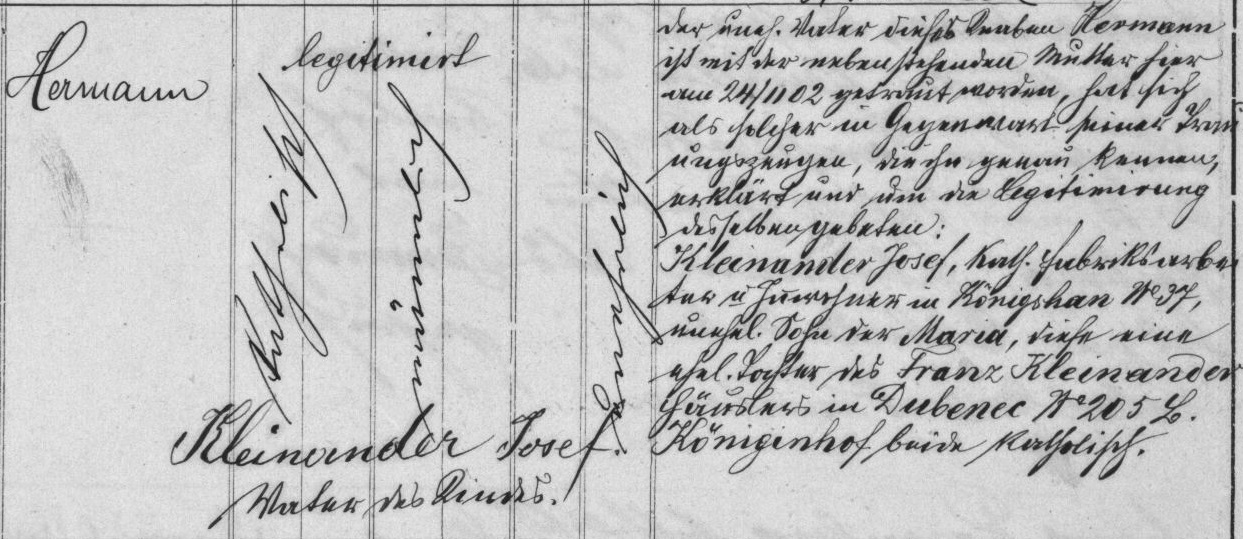 Hermann
legitimirt
Katholisch
männlich
unehelich
Kleinander Josef.
Vater des Kindes.
der uneh. Vater dieses Knaben Hermann
ist mit der nebenstehenden Mutter hier
am 24/11 02 getraut worden, hat sich
als solcher in Gegenwart seiner Trau
ungszeugen, die ihn genau kennen,
erklärt und um die Legitimirung
desselben gebeten:
Kleinander Josef, kath. Fabriksarbei
ter u Inwohner in Königshan No 37,
unehel. Sohn der Maria, diese eine
ehel. Tochter des Franz Kleinander
Häuslers in Dubenec No 205 B.
Königinhof, beide katholisch.